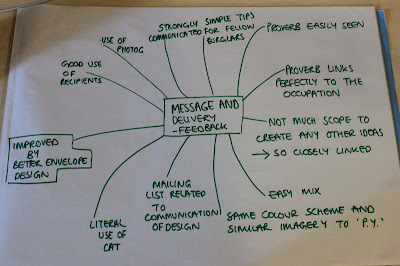 STRONGLY
COMMUNICATED
SIMPLE TIPS
FOR FELLOW
BURGLARS
PROVERB EASILY SEEN
USE OF
PHOTOG
GOOD USE
OF
RECIPIENTS
PROVERB LINKS
PERFECTLY TO THE
OCCUPATION
MESSAGE AND
DELIVERY
-FEEDBACK
NOT MUCH SCOPE TO
CREATE ANY OTHER IDEAS
→ SO CLOSELY LINKED
IMPROVED
BY
BETTER ENVELOPE
DESIGN
MAILING
LIST RELATED
TO
COMMUNICATION
OF DESIGN
EASY MIX
LITERAL
USE OF
CAT
SAME COLOUR SCHEME AND
SIMILAR IMAGERY TO 'P.Y.'